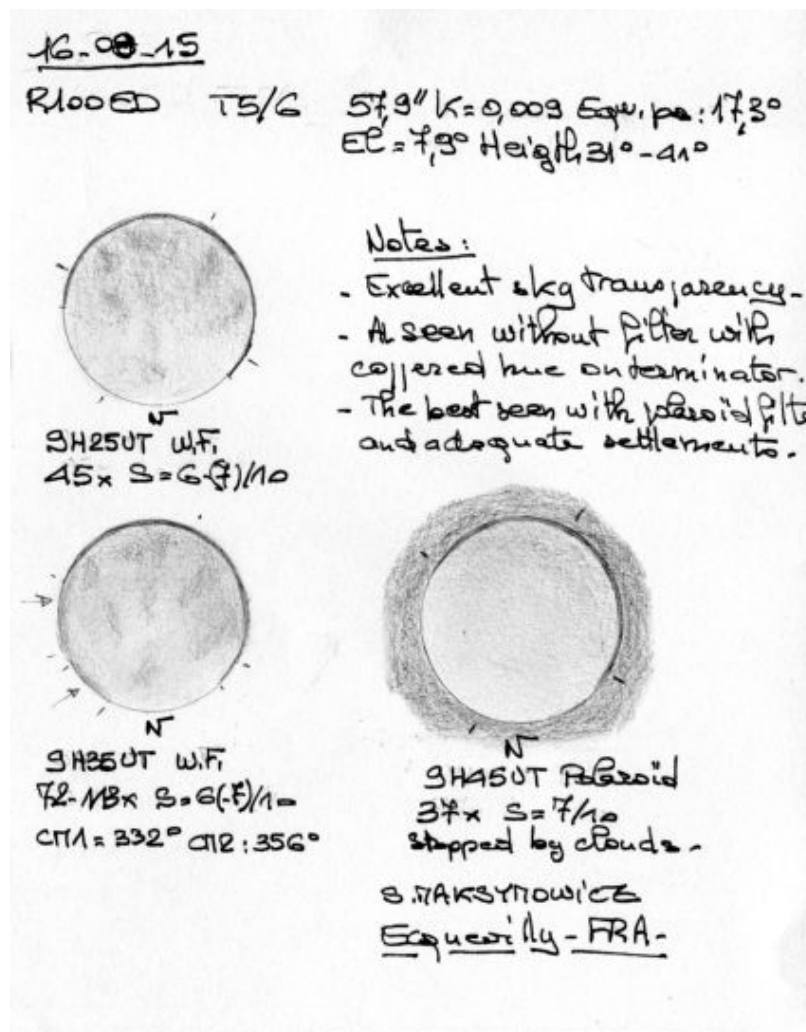 16-08-15
R100ED T5/6 57,9" K=0,009 Equ. : 17,3°
El = 7,9° Heigth 31° - 41°
Notes :
- Excellent sky transparency -
- As seen without filter with
coppered hue on terminator.
- The best seen with polaroïd filte
and adequate settlements.
N
9H25UT W.F.
45x S=6-(7)/10
N
9H35UT W.F.
72-113x S=6(-7)/10
CM1 = 332° CM2 : 356°
N
9H45UT Polaroïd
37x S= 7/10
stopped by clouds -
S. MAKSYMOWICZ
Ecquevilly - FRA -